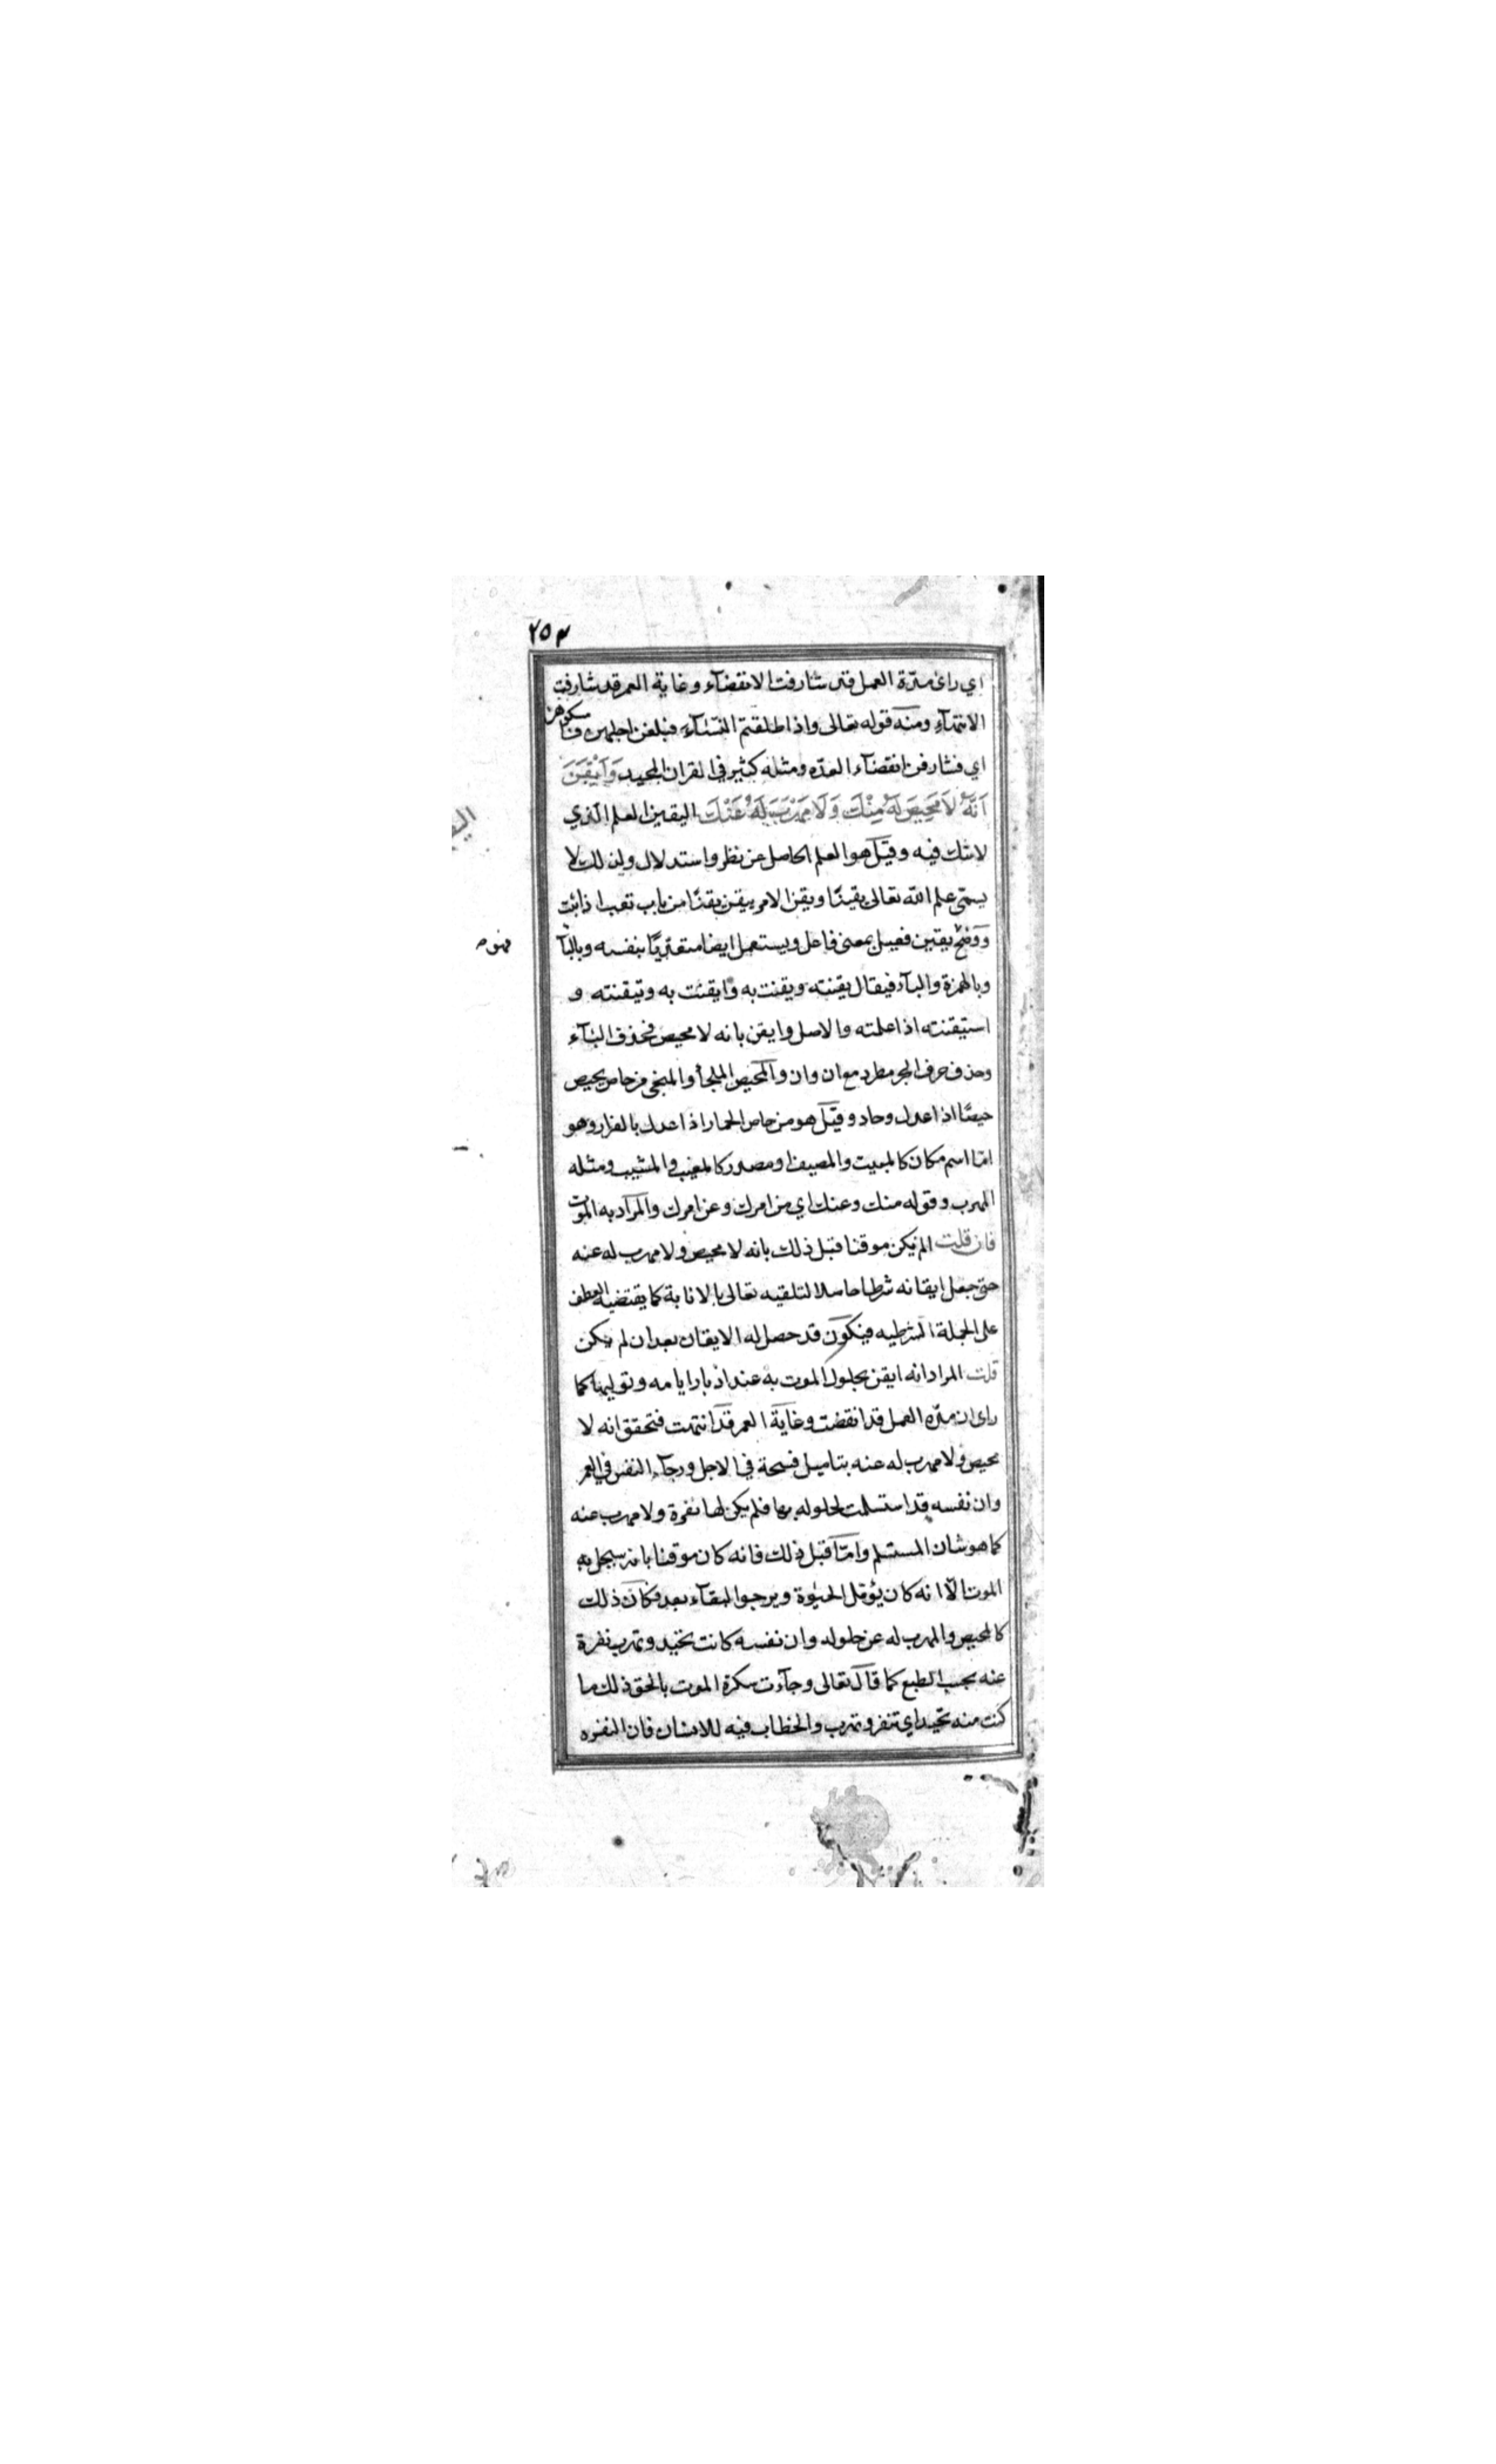 ٢٥٣
اي راى مدّة العمل قد شارفت الانقضآء وغاية العمر قد شارفت
الانتهآء ومنه قوله تعالى واذا طلقتم النسآء فبلغن اجلهن فامسكوهن
اي فشارفن انقضآء العدّه ومثله كثير في القران المجيد وَاَيْقَنَ
اَنَّهُ لَا مَحِيصَ لَهُ مِنْكَ وَلَا مَهْرَبَ لَهُ عَنْكَ اليقين العلم الذي
لا شك فيه وقيل هو العلم الحاصل عن نظر واستدلال ولذلك لا
يسمّى علم الله تعالى يقينًا ويقن الامر ييقن يقنًا من باب تعب اذا ثبت
ووضح يقين فعيل بمعنى فاعل ويستعمل ايضا متعدّيًا بنفسه وبالبآ
فهو
وبالهمزة والبآء فيقال يقنته ويقنت به وايقنت به وتيقنته و
استيقنته اذا علمته والاصل وايقن بانه لا محيص فحذف البآء
وحذف حرف الجر مطرد مع ان وان والمحيص الملجأ والمنجى من حاص يحيص
حيصًا اذا عدل وحاد وقيل هو من حاص الحمار اذا عدل بالفرار وهو
امّا اسم مكان كالمبيت والمصيف او مصدر كالمغيب والمشيب ومثله
المهرب وقوله منك وعنك اي من امرك وعن امرك والمراد به الموت
فان قلت الم يكن موقنا قبل ذلك بانه لا محيص ولا مهرب له عنه
حتى جعل ايقانه شرطا حاملا لتلقيه تعالى بالانابة كما يقتضيه العطف
على الجملة الشرطيه فيكون قد حصل له الايقان بعد ان لم يكن
قلت المراد انه ايقن بحلول الموت به عند ادبار ايامه وتوليها كما
راى ان مدّه العمل قد انقضت وغاية العمر قد انتهت فتحقق انه لا
محيص ولا مهرب له عنه بتاميل فسحة في الاجل ورجآء النفس في العمر
وان نفسه قد استسلمت لحلوله بها فلم يكن لها نفرة ولا مهرب عنه
كما هو شان المستسلم وامّا قبل ذلك فانه كان موقنا بانه سيحل به
الموت الّا انه كان يؤمل الحيٰوة ويرجوا البقآء بعد فكان ذلك
كالمحيص والمهرب له عن حلوله وان نفسه كانت تحيد وتهرب نفرة
عنه بحسب الطبع كما قال تعالى وجآءت سكرة الموت بالحق ذلك ما
كنت منه تحيد اي تنفر وتهرب والخطاب فيه للانسان فان النفره